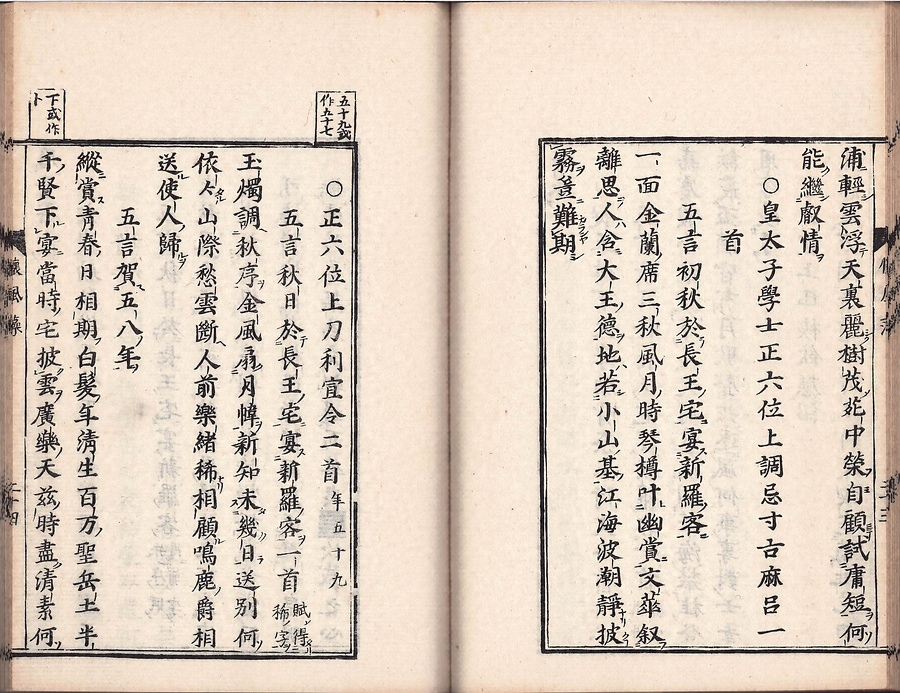 浦輕雲浮天裏麗樹茂苑中榮自顧試庸短何
能繼叡情
○皇太子學士正六位上調忌寸古麻呂一
首
五言初秋於長王宅宴新羅客
一面金蘭席三秋風月時琴樽叶幽賞文華叙
離思人含大王德地若小山基江海波潮靜披
霧豈難期
五十九或
作五十七
○正六位上刀利宜令二首年五十九
五言秋日於長王宅宴新羅客一首賦得稀字
玉燭調秋亭金風扇月幃新知未幾日送別何
依々山際愁雲斷人前樂緒稀相顧鳴鹿爵相
送使人歸
五言賀五八年
下或作
卜
縱賞青春日相期白髮年清生百万聖岳土半
千賢下宴當時宅披雲廣樂天茲時盡清素何
懷風藻